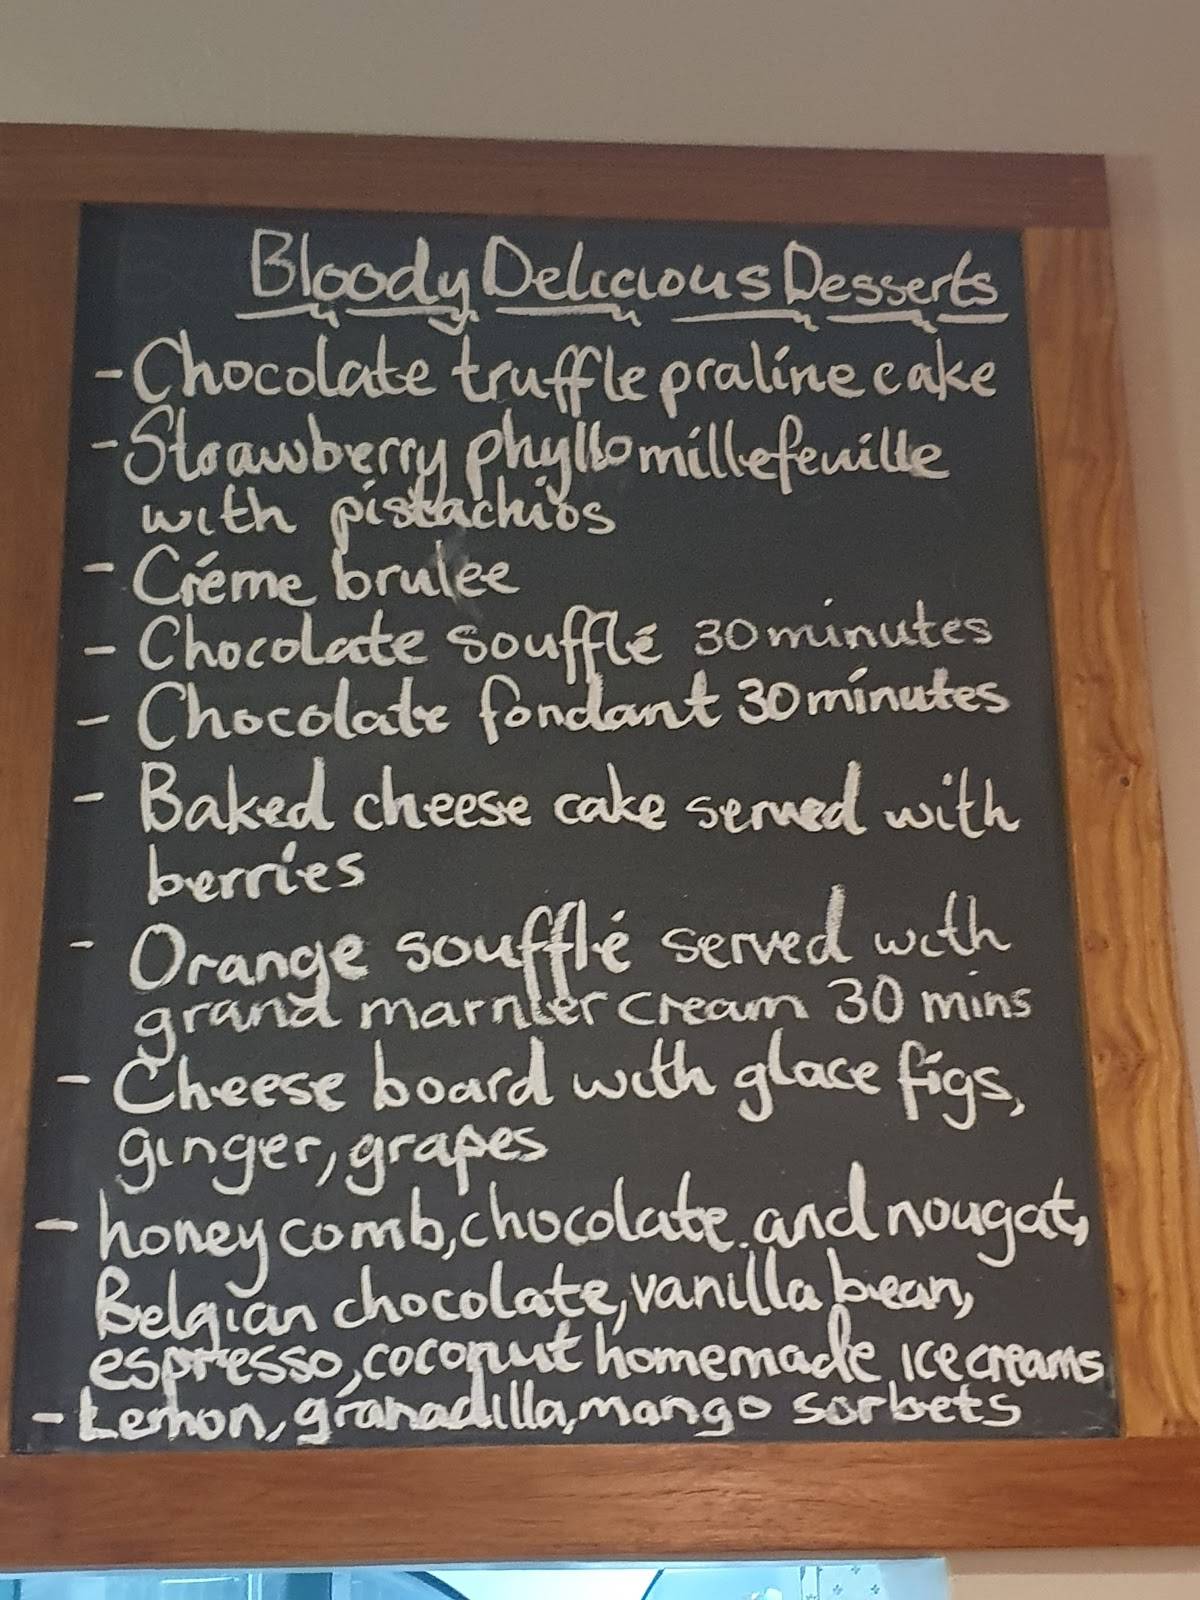 Bloody Delicious Desserts
- Chocolate truffle praline cake
- Strawberry phyllo millefeuille
with pistachios
- Créme brulee
- Chocolate soufflé 30 minutes
- Chocolate fondant 30 minutes
- Baked cheese cake served with
berries
- Orange soufflé served with
grand marnier cream 30 mins
- Cheese board with glace figs,
ginger, grapes
- honey comb, chocolate and nougat,
Belgian chocolate, vanilla bean,
espresso, coconut homemade ice creams
- Lemon, granadilla, mango sorbets